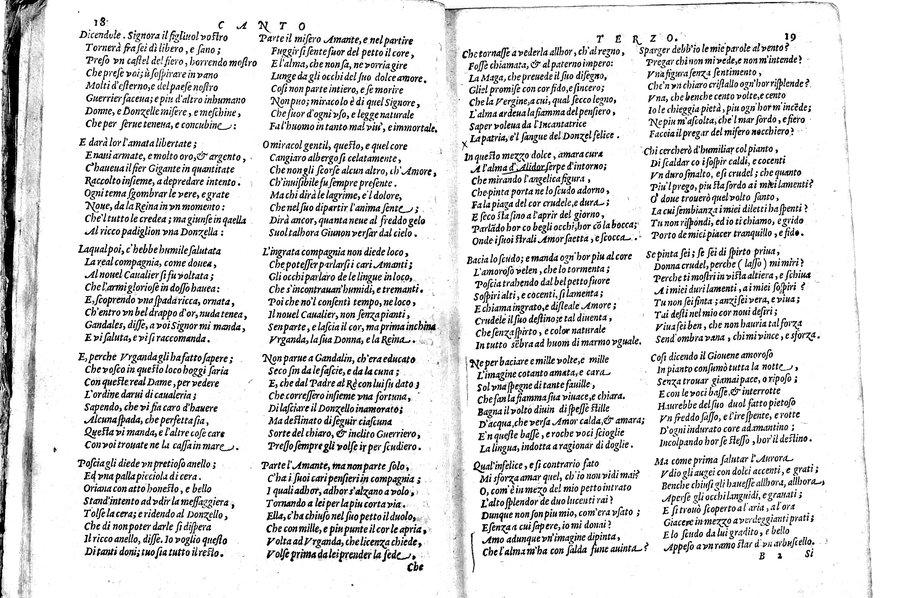 18
CANTO
Dicendule. Signora il figliuol vostro
Tornerà fra sei dì libero, e sano;
Preso vn castel del fiero, horrendo mostro
Che prese voi; ù sospirare in vano
Molti d'esterno, e del paese nostro
Guerrier faceua; e piu d'altro inhumano
Donne, e Donzelle misere, e meschine,
Che per serue teneua, e concubine:
E darà lor l'amata libertate;
Enaui armate, e molto oro, & argento,
C'haueua il fier Gigante in quantitate
Raccolto insieme, a depredare intento.
Ogni tema sgombrar le vere, e grate
Noue, da la Reina in vn momento:
Che'l tutto le credea; ma giunse in quella
Al ricco padiglion vna Donzella:
Laqual poi, c'hebbe humile salutata
La real compagnia, come douea,
Al nouel Caualier si fu voltata;
Che l'armi gloriose in dosso hauea:
E, scoprendo vna spada ricca, ornata,
Ch'entro vn bel drappo d'or, nuda tenea,
Gandales, disse, a voi Signor mi manda,
E vi saluta, e vi si raccomanda.
E, perche Vrganda gli ha fatto sapere;
Che vosco in questo loco hoggi saria
Con queste real Dame, per vedere
L'ordine darui di caualeria;
Sapendo, che vi fia caro d'hauere
Alcuna spada, che perfetta sia,
Questa vi manda, e l'altre cose care
Con voi trouate ne la cassa in mare.
Poscia gli diede vn pretioso anello;
Ed vna palla picciola di cera.
Oriana con atto honesto, e bello
Stand'intento ad vdir la messaggiera,
Tolse la cera; e ridendo al Donzello,
Che di non poter darle si dispera
Il ricco anello, disse. Io voglio questo
Di tanti doni; tuo sia tutto il resto.
Parte il misero Amante, e nel partire
Fuggir si sente fuor del petto il core,
E l'alma, che non sa, ne vorria gire
Lunge da gli occhi del suo dolce amore.
Così non parte intiero, e se morire
Non puo; miracolo è di quel Signore,
Che fuor d'ogni vso, e legge naturale
Fa l'huomo in tanto mal viu', e immortale.
O miracol gentil, questo, e quel core
Cangiaro albergo sì celatamente,
Che non gli scorse alcun altro, ch'Amore,
Ch'inuisibile fu sempre presente.
Ma chi dirà le lagrime, e'l dolore,
Che nel suo dipartir l'anima sente;
Dirà ancor, quanta neue al freddo gelo
Suol talhora Giunon versar dal cielo.
L'ingrata compagnia non diede loco,
Che potesser parlarsi i cari Amanti;
Gli occhi parlaro de le lingue in loco,
Che s'incontrauan'humidi, e tremanti.
Poi che no'l consentì tempo, ne loco,
Il nouel Caualier, non senza pianti,
Sen parte, e lascia il cor, ma prima inchina
Vrganda, la sua Donna, e la Reina.
Non parue a Gandalin, ch'era educato
Seco fin da le fascie, e da la cuna;
E, che dal Padre al Rè con lui fu dato;
Che corressero insieme vna fortuna,
Di lasciare il Donzello inamorato;
Ma destinato di seguir ciascuna
Sorte del chiaro, & inclito Guerriero,
Presso sempre gli volse ir per scudiero.
Parte l'Amante, ma non parte solo,
C'ha i suoi cari pensieri in compagnia;
I quali ad hor, ad hor s'alzano a volo,
Tornando a lei per la piu corta via.
Ella, c'ha chiuso nel suo petto il duolo,
Che con mille, e piu punte il cor le apria,
Volta ad Vrganda, che licenza chiede,
Volse prima da lei prender la fede,
Che
TERZO.
19
Che tornasse a vederla allhor, ch'al regno,
Fosse chiamata, & al paterno impero:
La Maga, che preuede il suo disegno,
Gliel promise con cor fido, e sincero;
Che la Vergine, a cui, qual secco legno,
L'alma ardeua la fiamma del pensiero,
Saper voleua da l'Incantatrice
La patria, e'l sangue del Donzel felice.
In questo mezzo dolce, amara cura
A l'alma d'Alidor serpe d'intorno;
Che mirando l'angelica figura,
Che pinta porta ne lo scudo adorno,
Fa la piaga del cor crudele, e dura;
E seco sta sino a l'aprir del giorno,
Parlādo hor co begli occhi, hor cō la bocca;
Onde i suoi strali Amor saetta, e scocca.
Bacia lo scudo; e manda ogn'hor piu al core
L'amoroso velen, che lo tormenta;
Poscia trahendo dal bel petto fuore
Sospiri alti, e cocenti, si lamenta;
E chiama ingrato, e disleale Amore;
Crudele il suo destino; e tal diuenta,
Che senza spirto, e color naturale
In tutto sēbra ad huom di marmo vguale.
Ne per baciare e mille volte, e mille
L'imagine cotanto amata, e cara
Sol vna spegne di tante fauille,
Che fan la fiamma sua viuace, e chiara.
Bagna il volto diuin di spesse stille
D'acqua, che versa Amor calda, & amara;
E'n queste basse, e roche voci scioglie
La lingua, indotta a ragionar di doglie.
Qual'infelice, e sì contrario fato
Mi sforza amar quel, ch'io non vidi mai?
O, com'è in mezo del mio petto intrato
L'alto splendor de duo lucenti rai?
Dunque non son piu mio, com'era vsato;
E senza a cui sapere, io mi donai?
Amo adunque vn'imagine dipinta,
Che l'alma m'ha con salda fune auinta?
Sparger debb'io le mie parole al vento?
Pregar chi non mi vede, e non m'intende?
Vna figura senza sentimento,
Che'n vn chiaro cristallo ogn'hor risplende?
Vna, che benche cento volte, e cento
Io le chieggia pietà, piu ogn'hor m'incēde;
Ne piu m'ascolta, che'l mar sordo, e fiero
Faccia il pregar del misero nocchiero?
Chi cercherò d'humiliar col pianto,
Di scaldar co i sospir caldi, e cocenti
Vn duro smalto, e sì crudel; che quanto
Piu'l prego, piu sta sordo a miei lamenti?
O' doue trouerò quel volto santo,
La cui sembianza i miei diletti ha spenti?
Tu non rispondi, ed io ti chiamo, e grido
Porto de miei piacer tranquillo, e fido.
Se pinta sei; se sei di spirto priua,
Donna crudel, perche (lasso) mi miri?
Perche ti mostri in vista altiera, e schiua
A i miei duri lamenti, a i miei sospiri?
Tu non sei finta; anzi sei vera, e viua;
Tai desti nel mio cor noui desiri;
Viua sei ben, che non hauria tal forza
Send'ombra vana, chi mi vince, e sforza.
Così dicendo il Giouene amoroso
In pianto consumò tutta la notte,
Senza trouar giamai pace, o riposo;
E con le voci basse, & interrotte
Haurebbe del suo duol fatto pietoso
Vn freddo sasso, e l'ire spente, e rotte
D'ogni indurato core adamantino;
Incolpando hor se stesso, hor'il destino.
Ma come prima salutar l'Aurora
Vdìo gli augei con dolci accenti, e grati;
Benche chiusi gli hauesse allhora, allhora,
Aperse gli occhi languidi, e grauati;
E si trouò scoperto a l'aria, a l'ora
Giacere in mezzo a verdeggianti prati;
E lo scudo da lui gradito, e bello
Appeso a vn ramo star d'vn arbuscello.
B 2
Si